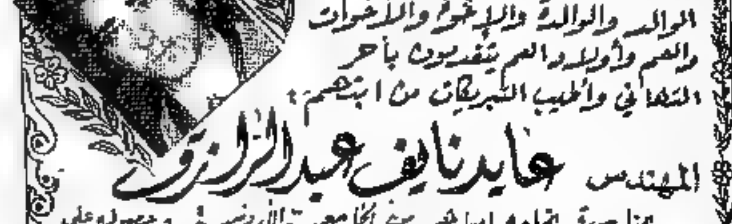 الوالد والوالدة والإخوة والأخوات
والعم وأولاد العم يتقدمون بأحر
التهاني وأطيب التبريكات من ابنهم :
المهندس عايد نايف عبد الرازق